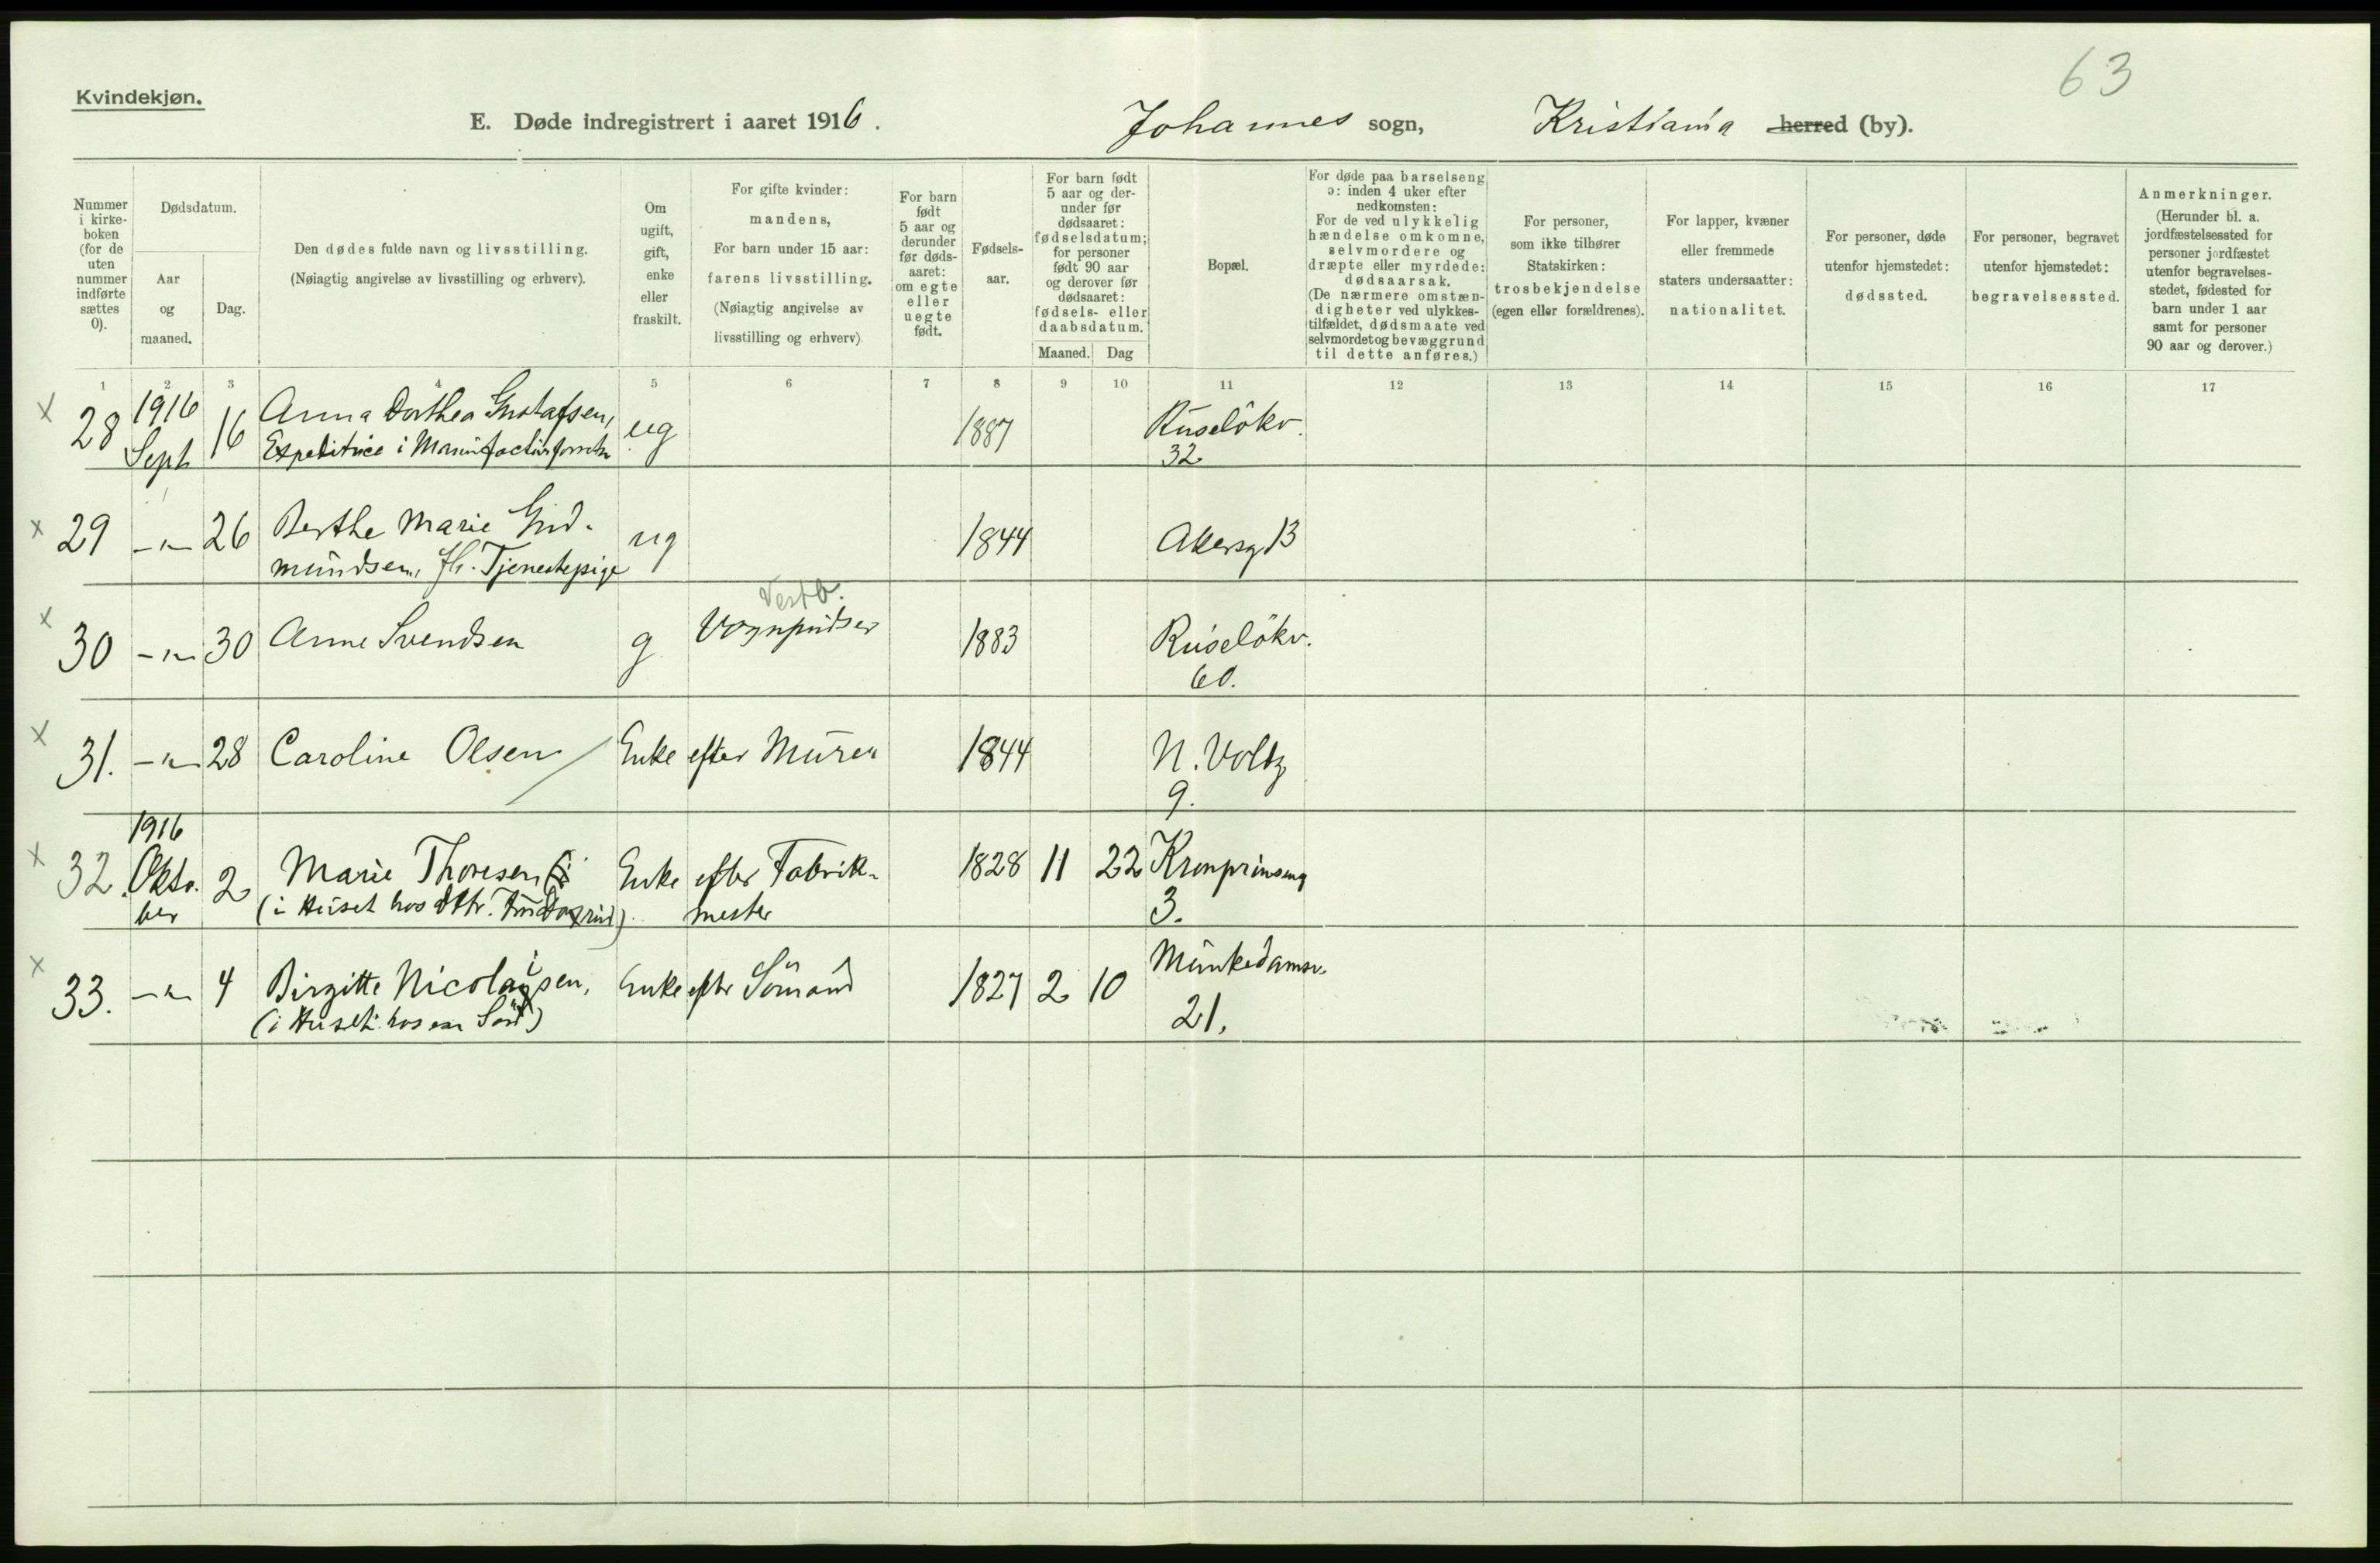 63
Kvindekjøn.
E. Døde indregistrert i aaret 1916.
Johannes sogn,
Kristiania herred (by).
Nummer i kirke-boken (for de uten nummer indførte sættes 0).
Dødsdatum.
Aar og maaned.
Dag.
Den dødes fulde navn og livsstilling.
(Nøiagtig angivelse av livsstilling og erhverv).
Om ugift, gift, enke eller fraskilt.
For gifte kvinder:
mandens,
For barn under 15 aar:
farens livsstilling.
(Nøiagtig angivelse av
livsstilling og erhverv)
For barn født 5 aar og derunder før døds-aaret: om egte eller uegte født.
Fødsels-aar.
For barn født 5 aar og der-under før dødsaaret: fødselsdatum; for personer født 90 aar og derover før dødsaaret: fødsels- eller daabsdatum.
Maaned.
Dag
Bopæl.
For døde paa barselseng
ɔ: inden 4 uker efter
nedkomsten:
For de ved ulykkelig
hændelse omkomne,
selvmordere og
dræpte eller myrdede:
dødsaarsak.
(De nærmere omstæn-
digheter ved ulykkes-
tilfældet, dødsmaate ved
selvmordet og bevæggrund
til dette anføres.)
For personer,
som ikke tilhører
Statskirken:
trosbekjendelse
(egen eller forældrenes).
For lapper, kvæner
eller fremmede
staters undersaatter:
nationalitet.
For personer, døde
utenfor hjemstedet:
dødssted.
For personer, begravet
utenfor hjemstedet:
begravelsessted.
Anmerkninger.
(Herunder bl. a.
jordfæstelsessted for
personer jordfæstet
utenfor begravelses-
stedet, fødested for
barn under 1 aar
samt for personer
90 aar og derover.)
1 2 3 4 5 6 7 8 9 10 11 12 13 14 15 16 17
x 28 1916 Sept 16 Anna Dorthea Gustafsen, ug 1887 Ruseløkv.
Expeditrice i 32
x 29 -"- 26 Berthe Marie Gud- ug 1844 Akersg 13
mundsen, fh. Tjenestepige
Vestb.
x 30 -"- 30 Anne Svendsen g Vognpudser 1883 Ruseløkv.
60.
x 31. -"- 28 Caroline Olsen Enke efter Murer 1844 N. Voltg
9.
1916
x 32. Okto- 2 Marie Thoresen Enke efter Fabrik- 1828 11 22 Kronprinsensg
ber (i Huset hos dtr. mester 3.
x 33. -"- 4 Birgitte Nicolaisen, Enke efter Sömand 1827 2 10 Munkedamsv.
(i Huset hos en Sön) 21.